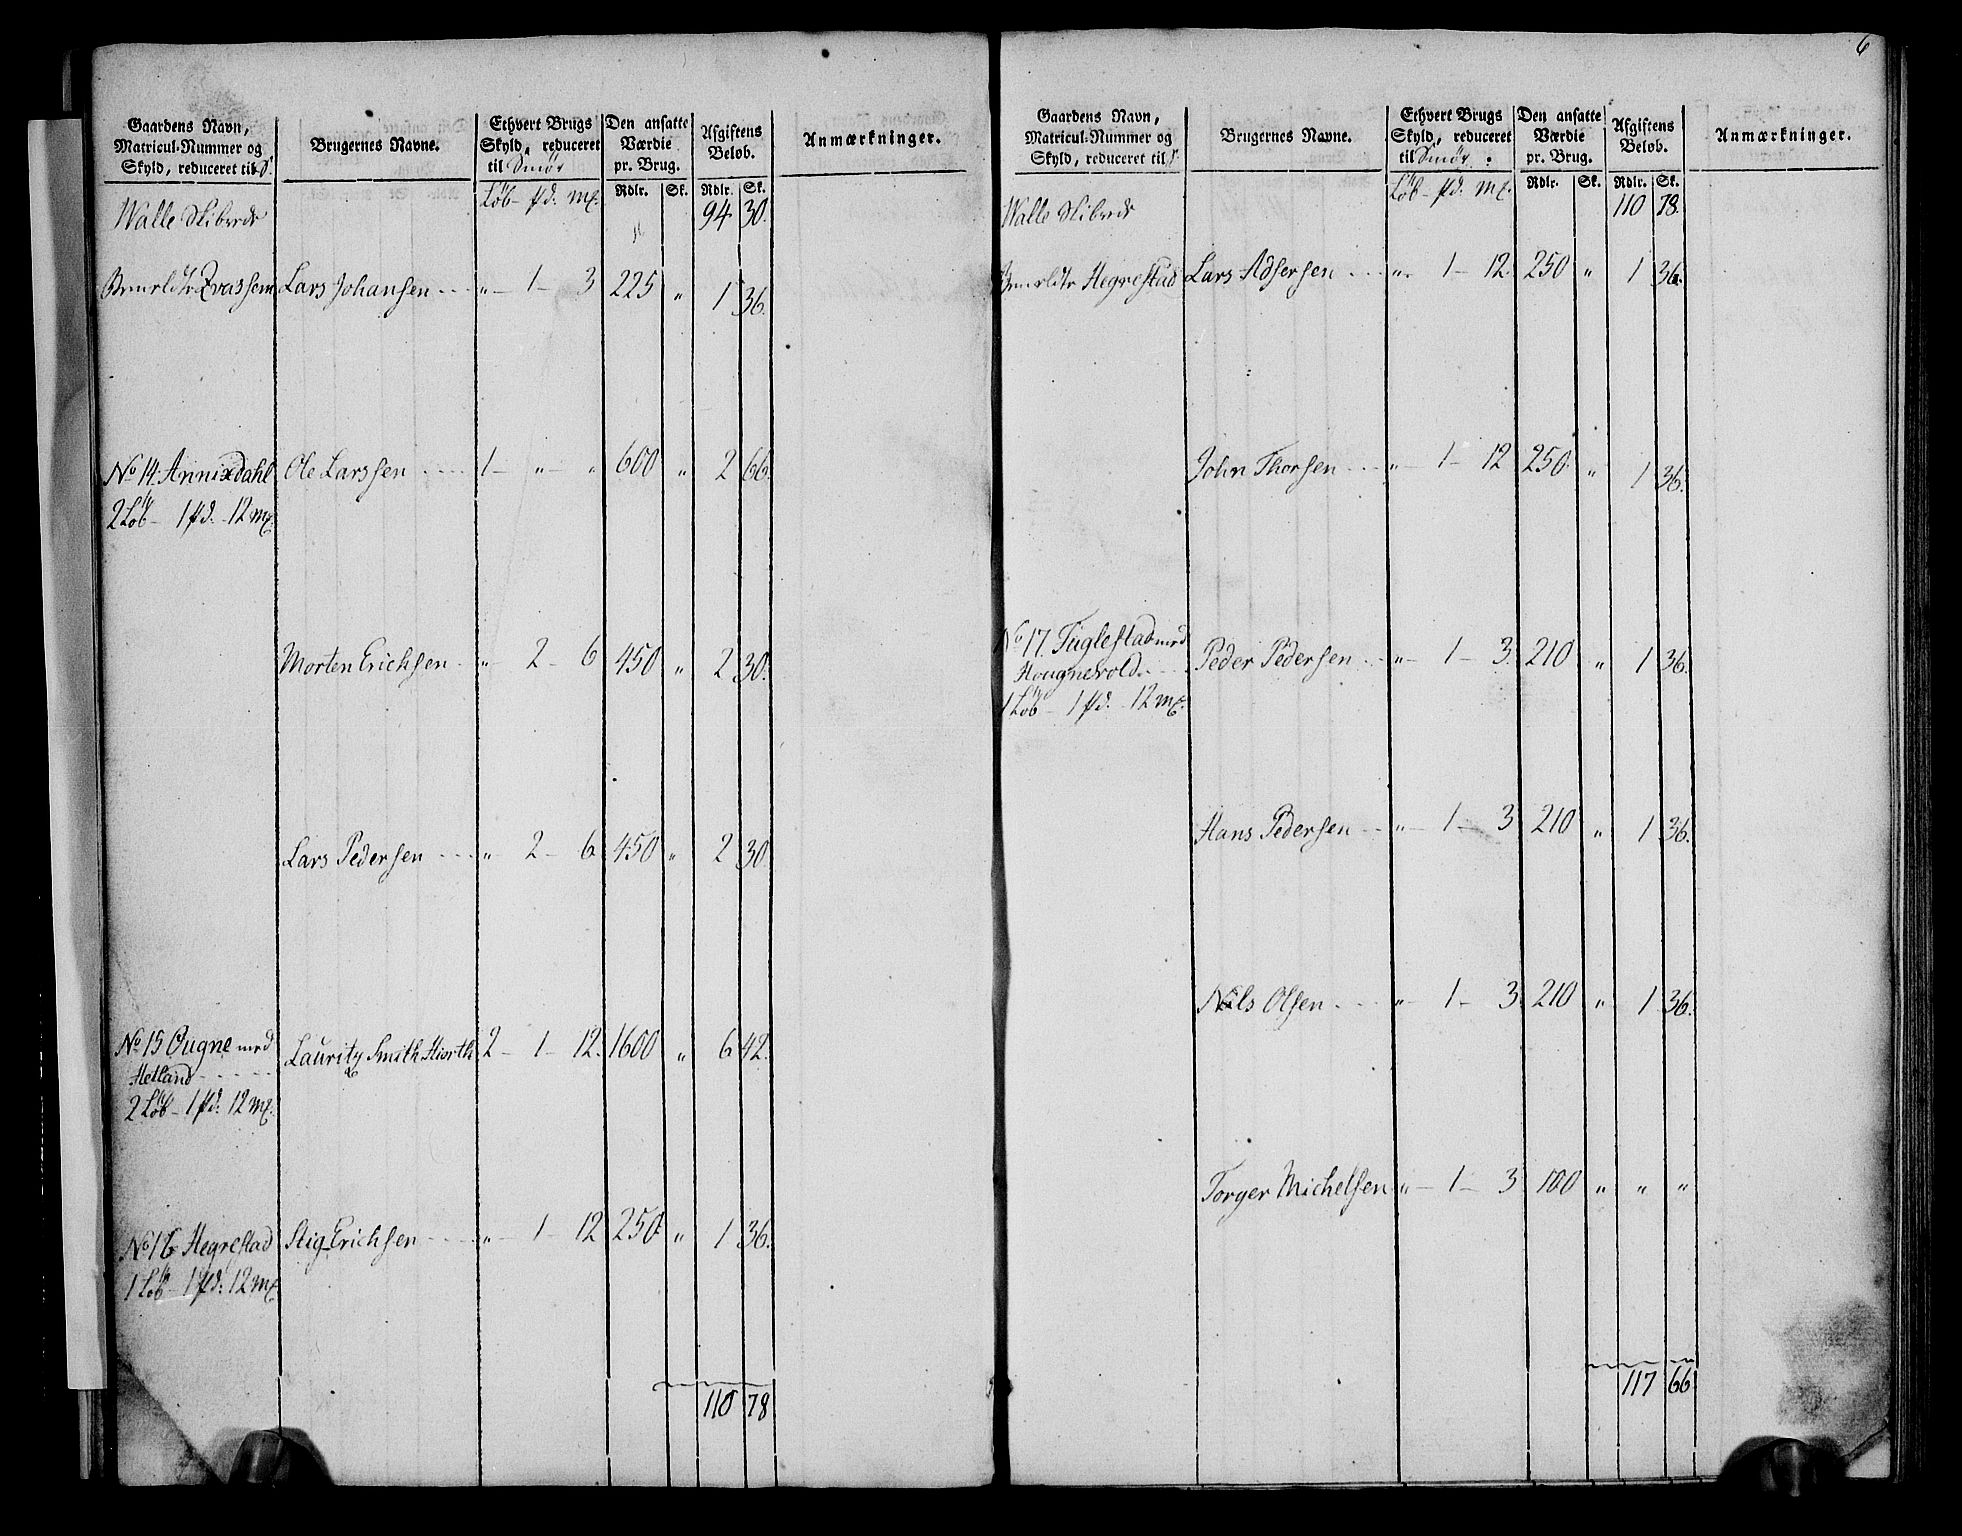 Gaardens Navn,
Matricul-Nummer og
Skyld, reduceret til
Brugernes Navne.
Ethvert Brugs
Skyld, reduceret
til Smör
Den ansatte
Værdie
pr. Brug.
Afgiftens
Beløb.
Anmærkninger.
Löb - pd. mk.
Rdlr. Sk. Rdlr. Sk.
Walle Skibrede 94 30.
Qvassem Lars Johansen " - 1 - 3 225 " 1 36.
No 14. Annixdahl Ole Larssen 1 - " - " 600 " 2 66.
2 Löb - 1 pd. - 12 mk.
Morten Erichsen " 2 - 6 450 " 2 30.
Lars Pedersen " 2 - 6 450 " 2 30
No 15 Ougne med Lauritz Smith Hiorth 2 - 1 - 12. 1600 " 6 42.
Hetland
2 Löb - 1 pd. 12 mk.
No 16 Hegrestad Stig Erichsen " - 1 - 12 250 " 1 36.
1 Löb - 1 pd. 12 mk.
110 78
6
Gaardens Navn,
Matricul-Nummer og
Skyld, reduceret til
Brugernes Navne.
Ethvert Brugs
Skyld, reduceret
til Smör.
Den ansatte
Værdie
pr. Brug.
Afgiftens
Beløb.
Anmærkninger.
Löb - pd. mk.
Rdlr. Sk. Rdlr. Sk.
Walle Skibrede 110 78.
Hegrestad Lars Adsersen " - 1 - 12. 250 " 1 36.
John Thorsen " - 1 - 12 250 " 1 36.
No 17. Fuglestad med Peder Pedersen " - 1 - 3. 210 " 1 36.
Hougnevold
1 Löb - 1 pd. - 12 mk.
Hans Pedersen " - 1 - 3 210 " 1 36.
Nils Olsen " - 1 - 3 210 " 1 36.
Torger Michelsen " - 1 - 3 100 " " "
117 66